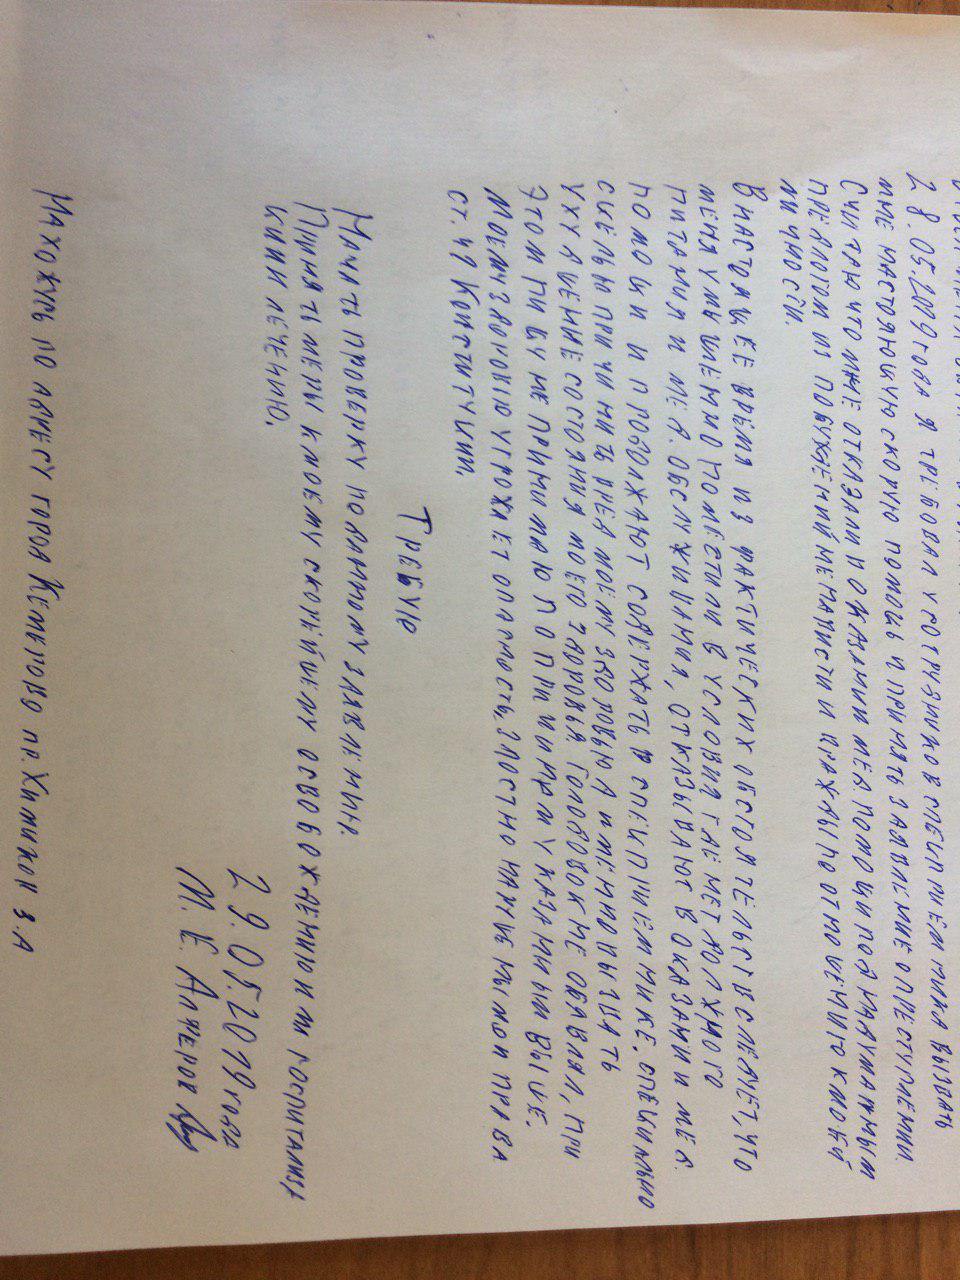 28.05.2019 года я требовал у сотрудников специриемника вызвать
мне настоящую скорую помощь и принять заявление о преступлении.
Считаю что мне отказали в оказании мед. помощи под надуманным
предлогом из побуждений ненависти и вражды по отношению к моей
личности.
В настоящее время из фактических обстоятельств следует, что
меня умышленно поместили в условия где нет должного
питания и мед. обслуживания, отказывают в оказании мед.
помощи и продолжают содержать в спецприемнике. специально
с целью причинить вред моему здоровью а именно вызвать
ухудшение состояния моего здоровья. Голодовок не объявлял, при
этом пищу не принимаю по причинам указанным выше.
Моему здоровью угрожает опасность, злостно нарушены мои права
ст. 41 Конституции.
Требую
Начать проверку по данному заявлению.
Принять меры к моему скорейшему освобождению и госпитализа
ции лечению.
29.05.2019 года
М. Е Алферов
Нахожусь по адресу город Кемерово пр. Химиков 3.А